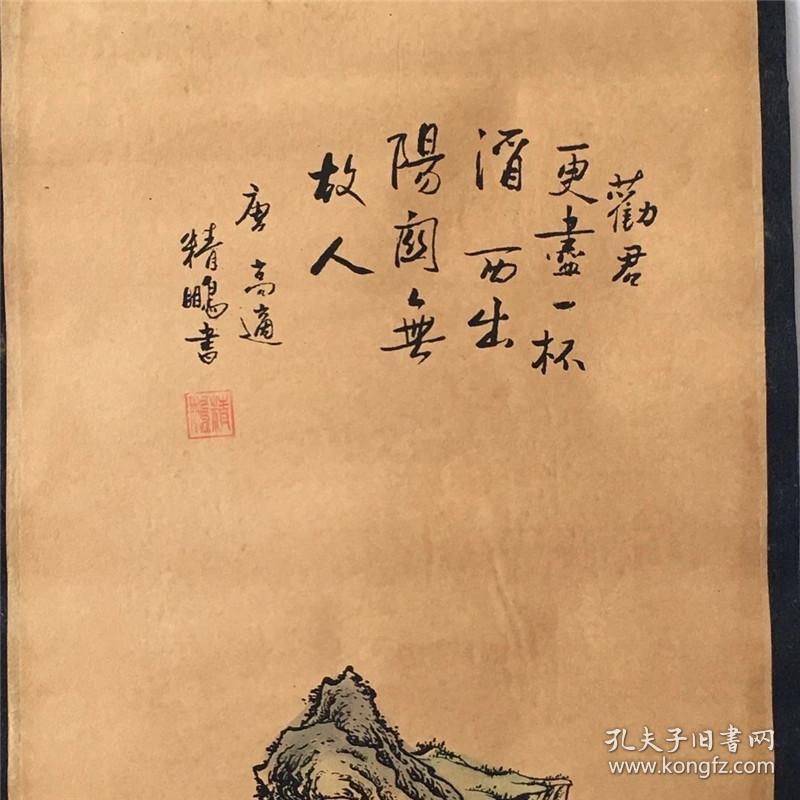 勸君
更盡一杯
酒 西出
陽關無
故人
唐 高適
精鵬書
孔夫子旧书网
www.kongfz.com